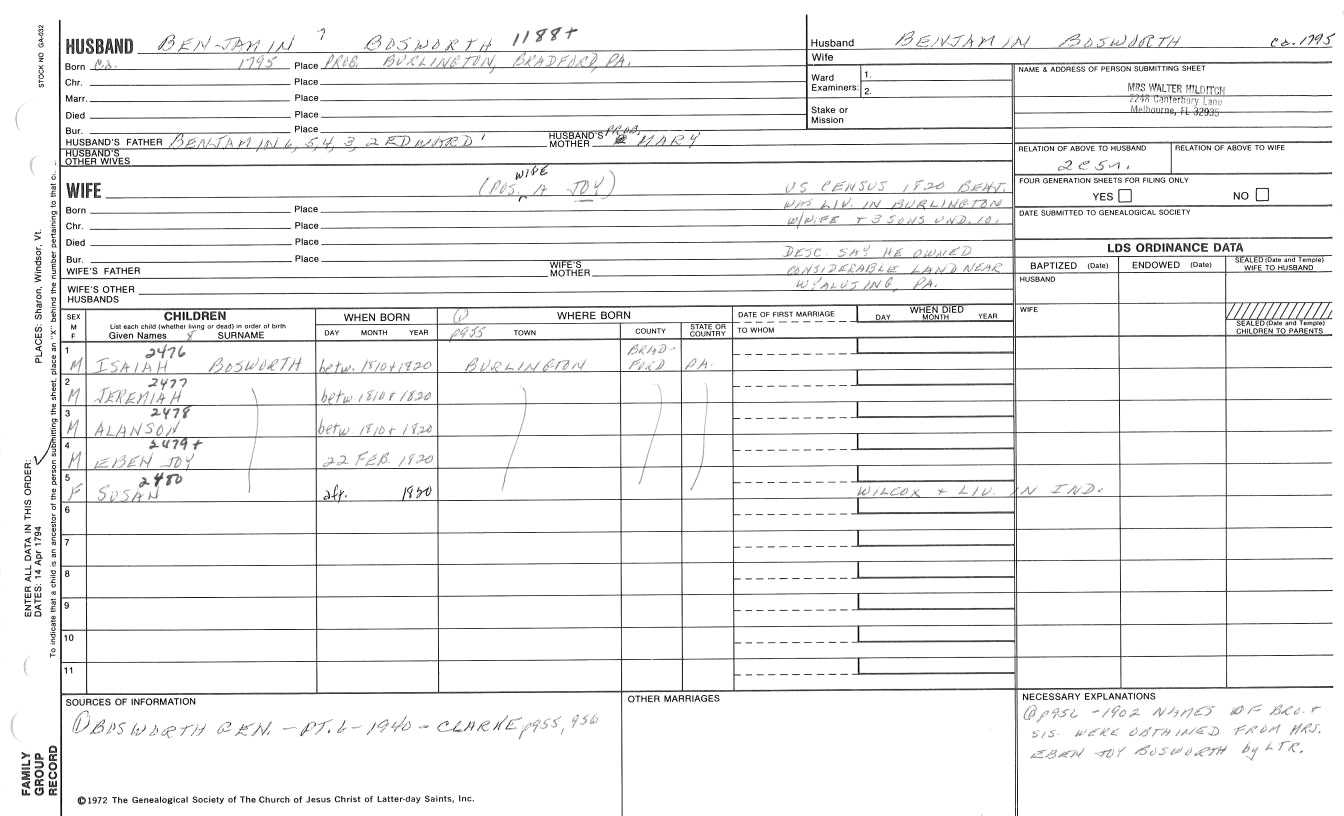 STOCK NO GA-032
HUSBAND BEN-JAMIN 7 BOSWORTH 1188+
Born ca. 1795 Place PROB. BURLINGTON, BRADFORD, PA.
Chr. Place
Marr. Place
Died Place
Bur. Place
HUSBAND'S FATHER BENJAMIN 6, 5, 4, 3, 2 EDWARD 1 HUSBAND'S MOTHER PROB. MARY
HUSBAND'S OTHER WIVES
Husband BENJAMIN BOSWORTH ca. 1795
Wife
Ward Examiners: 1.
2.
Stake or Mission
NAME & ADDRESS OF PERSON SUBMITTING SHEET
MRS WALTER HILDITCH
2248 Canterbury Lane
Melbourne, FL 32935
RELATION OF ABOVE TO HUSBAND RELATION OF ABOVE TO WIFE
FOUR GENERATION SHEETS FOR FILING ONLY
YES NO
DATE SUBMITTED TO GENEALOGICAL SOCIETY
WIFE (POS. A WIFE JOY)
Born Place
Chr. Place
Died Place
Bur. Place
WIFE'S FATHER WIFE'S MOTHER
WIFE'S OTHER HUSBANDS
US CENSUS 1820 BENJ.
WAS LIV. IN BURLINGTON
W/WIFE + 3 SONS UND. 10.
DESC. SAY HE OWNED
CONSIDERABLE LAND NEAR
WYALUSING, PA.
LDS ORDINANCE DATA
BAPTIZED (Date) ENDOWED (Date) SEALED (Date and Temple) WIFE TO HUSBAND
HUSBAND
WIFE
SEALED (Date and Temple) CHILDREN TO PARENTS
SEX M F
CHILDREN
List each child (whether living or dead) in order of birth
Given Names 8 SURNAME
WHEN BORN
DAY MONTH YEAR
① WHERE BORN
p955 TOWN COUNTY STATE OR COUNTRY
DATE OF FIRST MARRIAGE
TO WHOM
WHEN DIED
DAY MONTH YEAR
1 M 2476 ISAIAH BOSWORTH betw. 1810+1820 BURLINGTON BRAD-FORD PA.
2 M 2477 JEREMIAH betw 1810+1820
3 M 2478 ALANSON betw 1810+1820
4 M 2479+ EBEN JOY 22 FEB. 1820
5 F 2480 SUSAN aft. 1820 WILCOX + LIV. IN IND.
6
7
8
9
10
11
SOURCES OF INFORMATION
① BOSWORTH GEN. - PT. 6 - 1940 - CLARKE p955, 956
OTHER MARRIAGES
NECESSARY EXPLANATIONS
@ p956 - 1902 NAMES OF BRO. +
SIS. WERE OBTAINED FROM MRS.
EBEN JOY BOSWORTH by LTR.
©1972 The Genealogical Society of The Church of Jesus Christ of Latter-day Saints, Inc.
FAMILY GROUP RECORD
ENTER ALL DATA IN THIS ORDER:
DATES: 14 Apr 1794 PLACES: Sharon, Windsor, Vt.
To indicate that a child is an ancestor of the person submitting the sheet, place an "X" behind the number pertaining to that c.